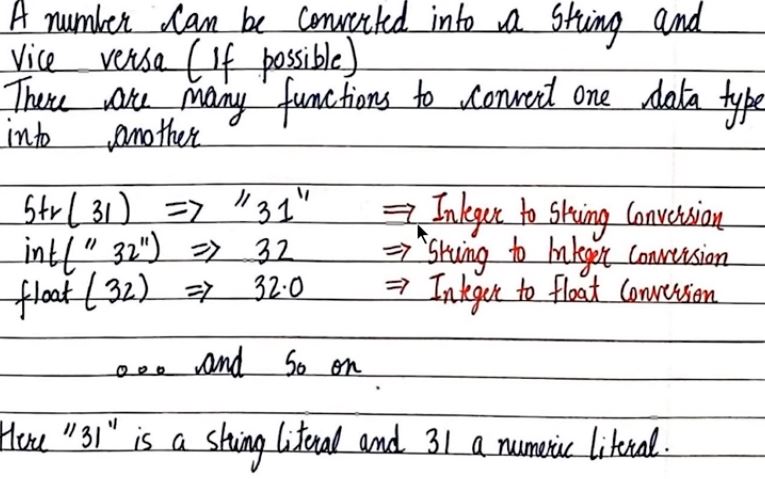 A number can be converted into a string and
vice versa (if possible)
There are many functions to convert one data type
into another
Str( 31) => "31" => Integer to String Conversion
int(" 32") => 32 => String to Integer Conversion
float (32) => 32.0 => Integer to float Conversion
ooo and so on
Here "31" is a string literal and 31 a numeric literal.